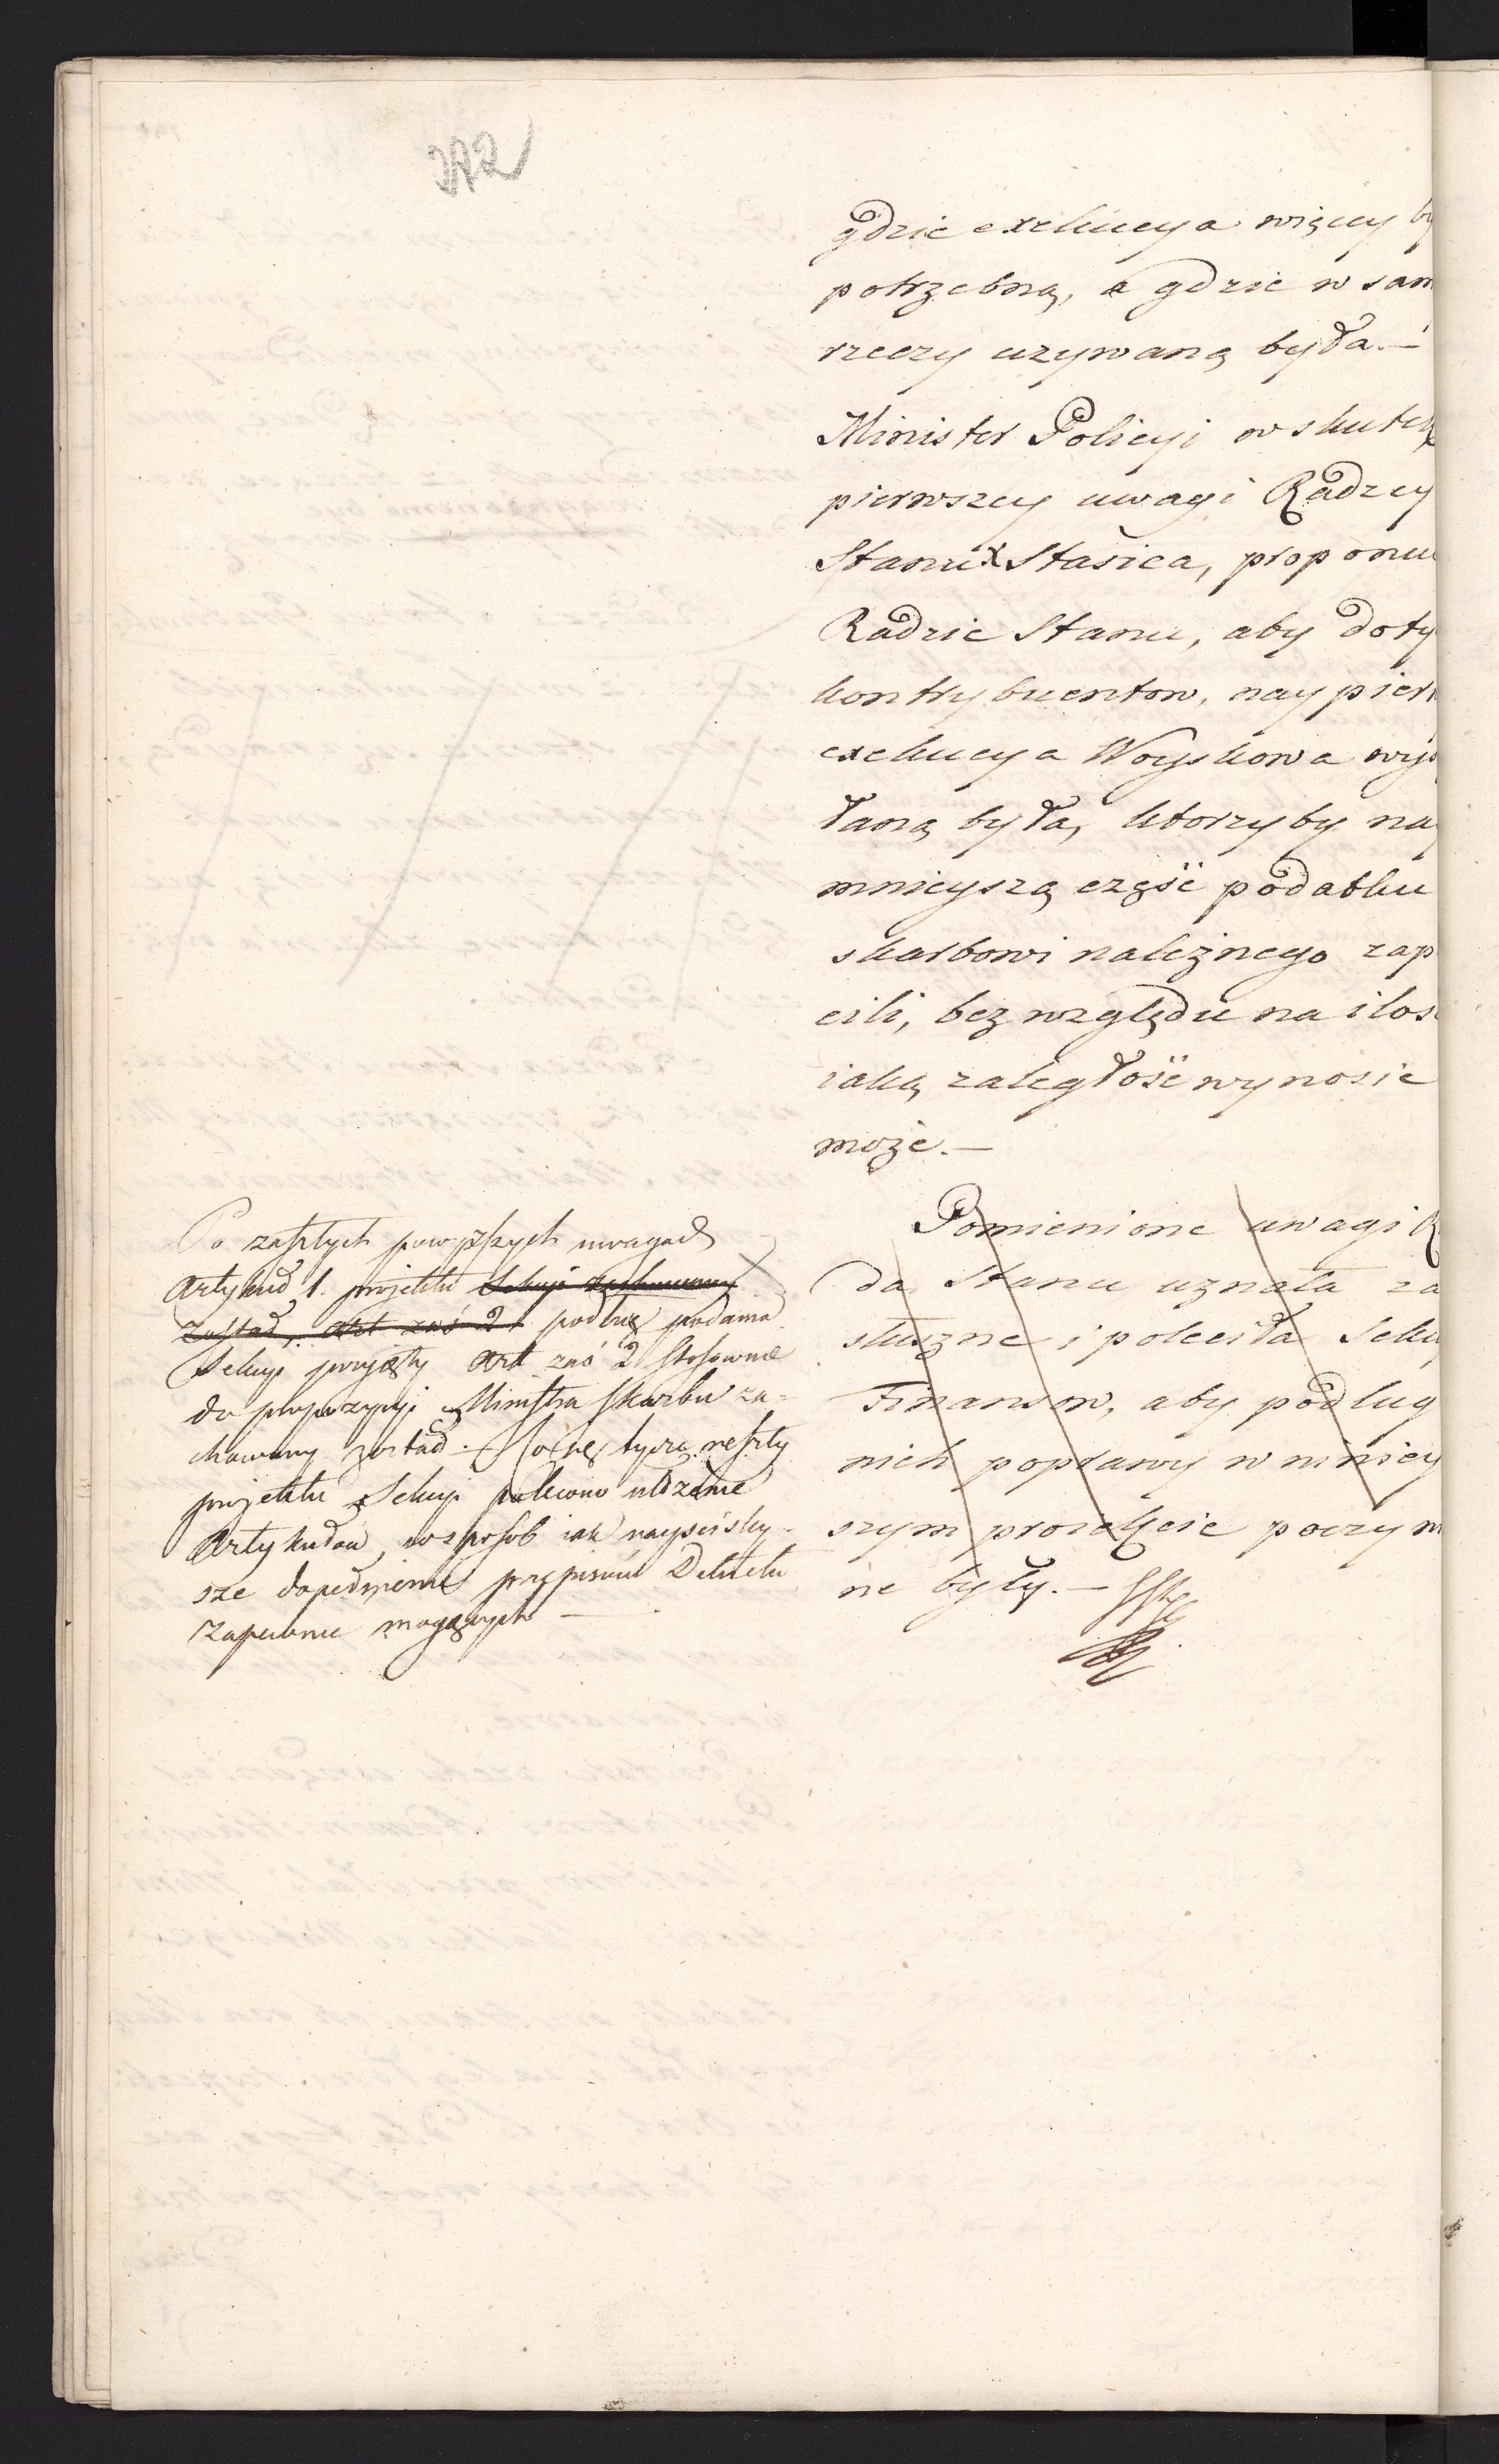 372
gdzie exekucya więcey by
potrzebną, a gdzie w sam
rzeczy uzywaną była.—
Minister Policyi w skutek
pierwszey uwagi Radzcy
Stanu X Stasica, proponu
Radzie Stanu, aby doty
kontrybuentow, nay pier
exekucya Woyskowa wys
łaną była, ktorzyby nay
mnieyszą część podatku
skarbowi należnego zap
cili, bez względu na ilos
iaką zaległość wynosic
może.—
Pomienione uwagi R
da Stanu uznała za
słuszne i poleciła Sekcy
Finansow, aby podług
nich poprawy w niniey
szym proiekcie poczyn
ne były.—
Po zaszłych powyższych uwagach
Artykuł 1. projektu Sekcyi zachowany
został, Art zaś 2 podług podania
Sekcyi przyięty Art zaś 2 stosownie
do propozycyi Ministra Skarbu za=
chowany został. — Co się tycze reszty
projektu Sekcyi polecono ułożenie
Artykułow, w sposob iak nayściśley-
sze dopełnienie przepisow Dekretu
zapewnic mogących —